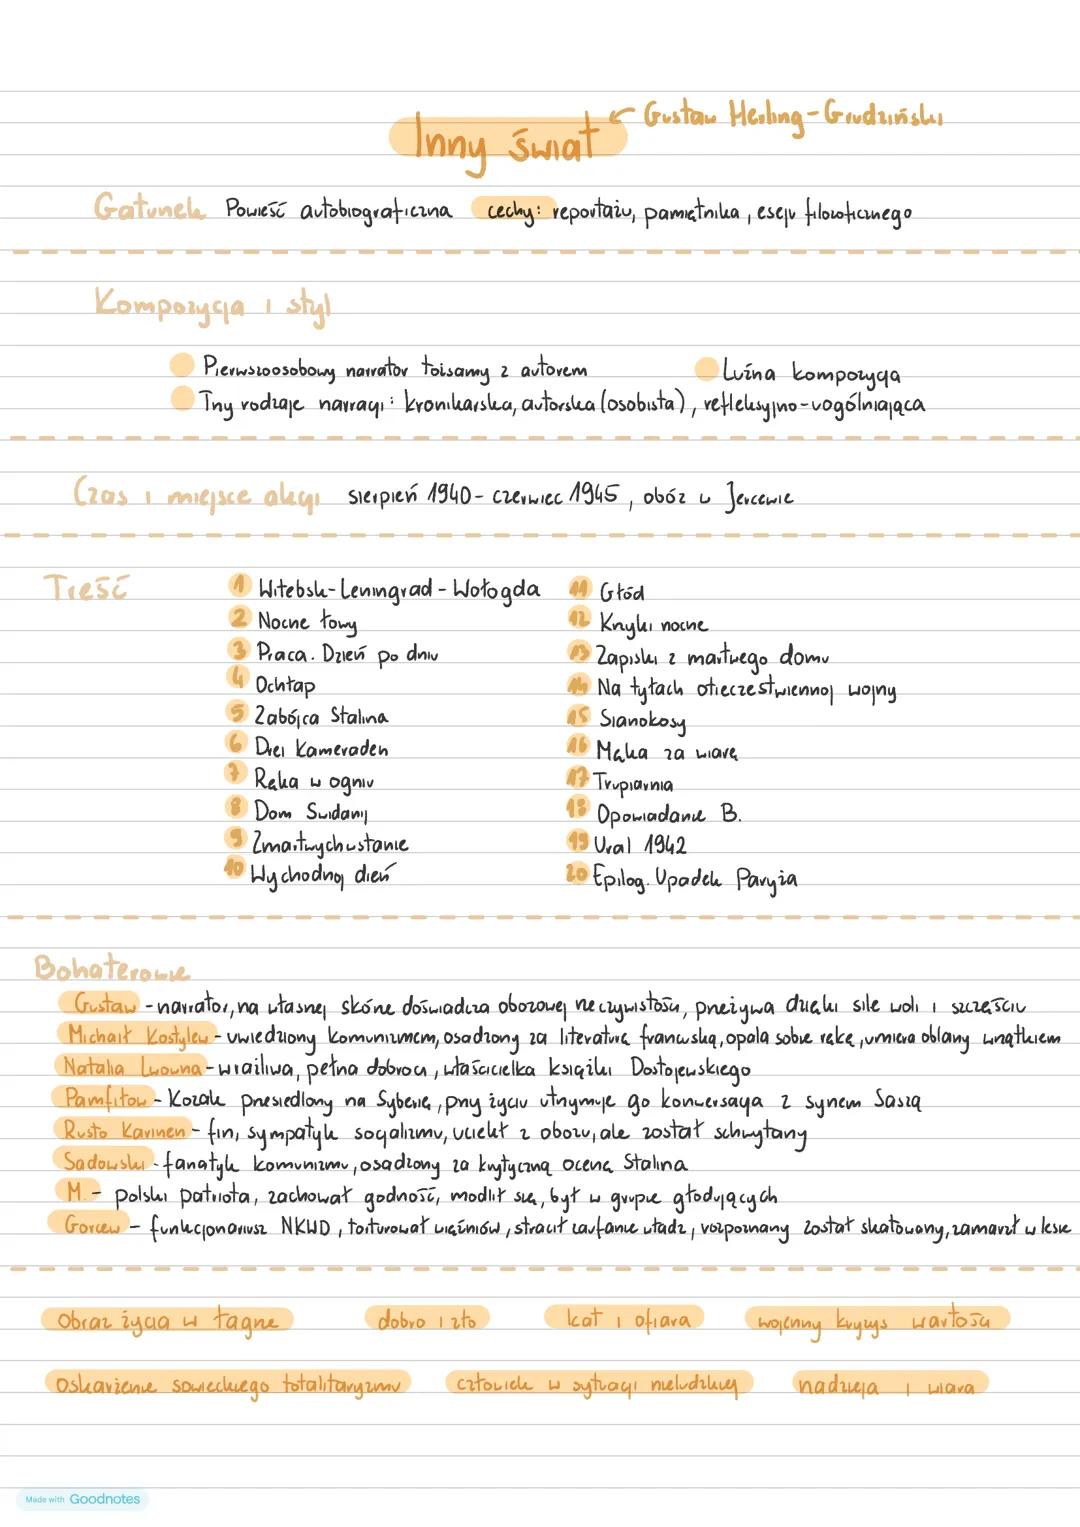 Inny świat ← Gustaw Herling-Grudziński
Gatunek Powieść autobiograficzna cechy: reportażu, pamiętnika, eseju filozoficznego
Kompozycja i styl
Pierwszoosobowy narrator tożsamy z autorem
Luźna kompozycja
Trzy rodzaje narracji: kronikarska, autorska (osobista), refleksyjno-uogólniająca
Czas i miejsce akcji sierpień 1940 - czerwiec 1945, obóz w Jercewie
Treść
1 Witebsk-Leningrad-Wołogda
2 Nocne łowy
3 Praca. Dzień po dniu
4 Ochłap
5 Zabójca Stalina
6 Drei Kameraden
7 Ręka w ogniu
8 Dom Swidanij
9 Zmartwychwstanie
10 Wychodnoj dień
11 Głód
12 Krzyki nocne
13 Zapiski z martwego domu
14 Na tyłach otieczestwiennoj wojny
15 Sianokosy
16 Męka za wiarę
17 Trupiarnia
18 Opowiadanie B.
19 Ural 1942
20 Epilog. Upadek Paryża
Bohaterowie
Gustaw - narrator, na własnej skórze doświadcza obozowej rzeczywistości, przeżywa dzięki sile woli i szczęściu
Michaił Kostylew - uwiedziony komunizmem, osadzony za literaturę francuską, opala sobie rękę, umiera oblany wrzątkiem
Natalia Lwowna - wrażliwa, pełna dobroci, właścicielka książki Dostojewskiego
Pamfiłow - Kozak przesiedlony na Syberię, przy życiu utrzymuje go konwersacja z synem Saszą
Rusto Karinen - fin, sympatyk socjalizmu, uciekł z obozu, ale został schwytany
Sadowski - fanatyk komunizmu, osadzony za krytyczną ocenę Stalina
M. - polski patriota, zachował godność, modlił się, był w grupie głodujących
Gorcew - funkcjonariusz NKWD, torturował więźniów, stracił zaufanie władz, rozpoznany został skatowany, zamarzł w lesie
Obraz życia w łagrze dobro i zło kat i ofiara wojenny kryzys wartości
Oskarżenie sowieckiego totalitaryzmu człowiek w sytuacji nieludzkiej nadzieja i wiara
Made with Goodnotes